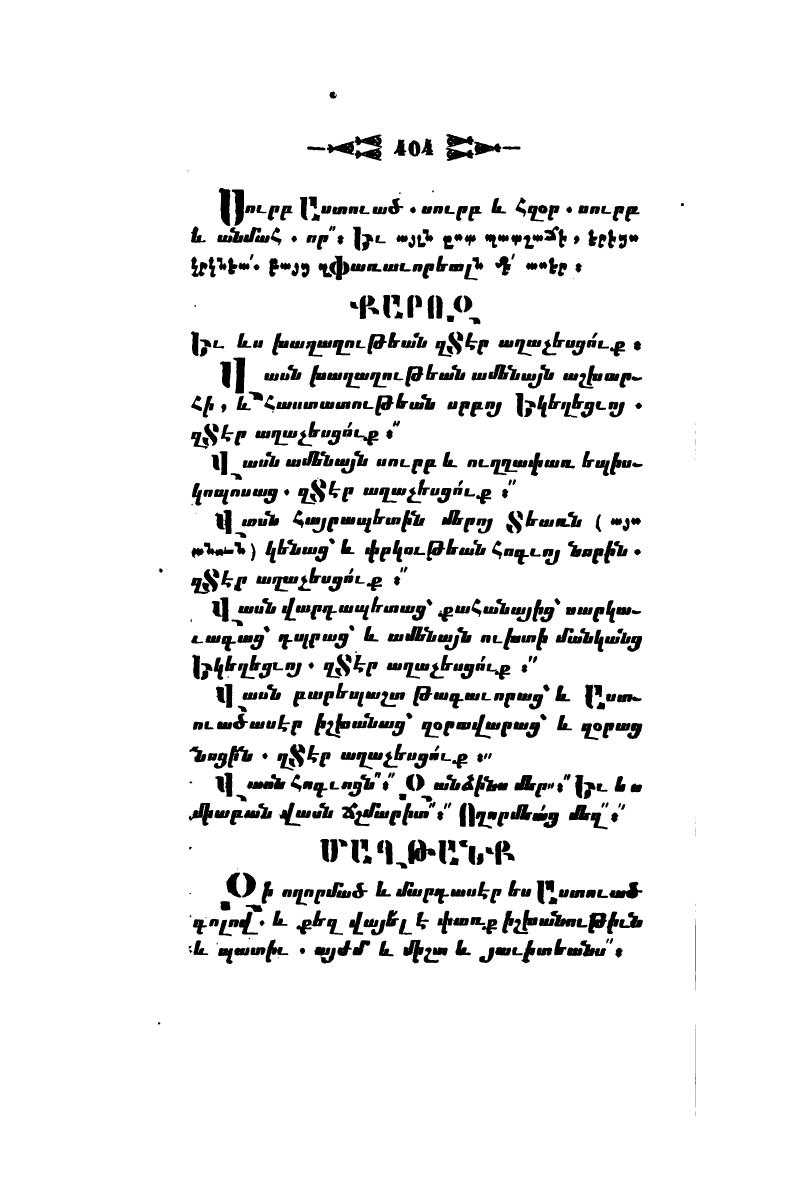 404
Սուրբ Աստուած . սուրբ և Հզօր . սուրբ
և անմահ . որ՛՛։ Եւ այլն ըստ պատշաճի , երիցս
երկնէա՛. բայց զփառաւորեալն մի՛ ասեր ։
ՔԱՐՈԶ
Եւ ևս խաղաղութեան զՏէր աղաչեսցո՛ւք ։
Վասն խաղաղութեան ամենայն աշխար-
հի , և հաստատութեան սրբոյ Եկեղեցւոյ .
զՏէր աղաչեսցո՛ւք ։՛՛
Վասն ամենայն սուրբ և ուղղափառ եպիս-
կոպոսաց . զՏէր աղաչեսցո՛ւք ։՛՛
Վասն Հայրապետին մերոյ Տեառն ( այս
անուն ) կենաց՝ և փրկութեան հոգւոյ նորին .
զՏէր աղաչեսցո՛ւք ։՛՛
Վասն վարդապետաց՝ քահանայից՝ սարկա-
ւագաց՝ դպրաց՝ և ամենայն ուխտի մանկանց
Եկեղեցւոյ . զՏէր աղաչեսցո՛ւք ։՛՛
Վասն բարեպաշտ թագաւորաց՝ և Աստ-
ուածասէր իշխանաց՝ զօրավարաց՝ և զօրաց
նոցին . զՏէր աղաչեսցո՛ւք ։՛՛
Վասն հոգւոցն՛՛։՛՛ Զանձինս մեր՛՛։՛՛ Եւ ևս
միաբան վասն ճշմարիտ՛՛։՛՛ Ողորմեա՛ց մեզ՛՛։՛՛
ՄԱՂԹԱՆՔ
Զի ողորմած և մարդասէր ես Աստուած
գոլով . և քեզ վայել է փառք իշխանութիւն
և պատիւ . այժմ և միշտ և յաւիտեանս՛՛։